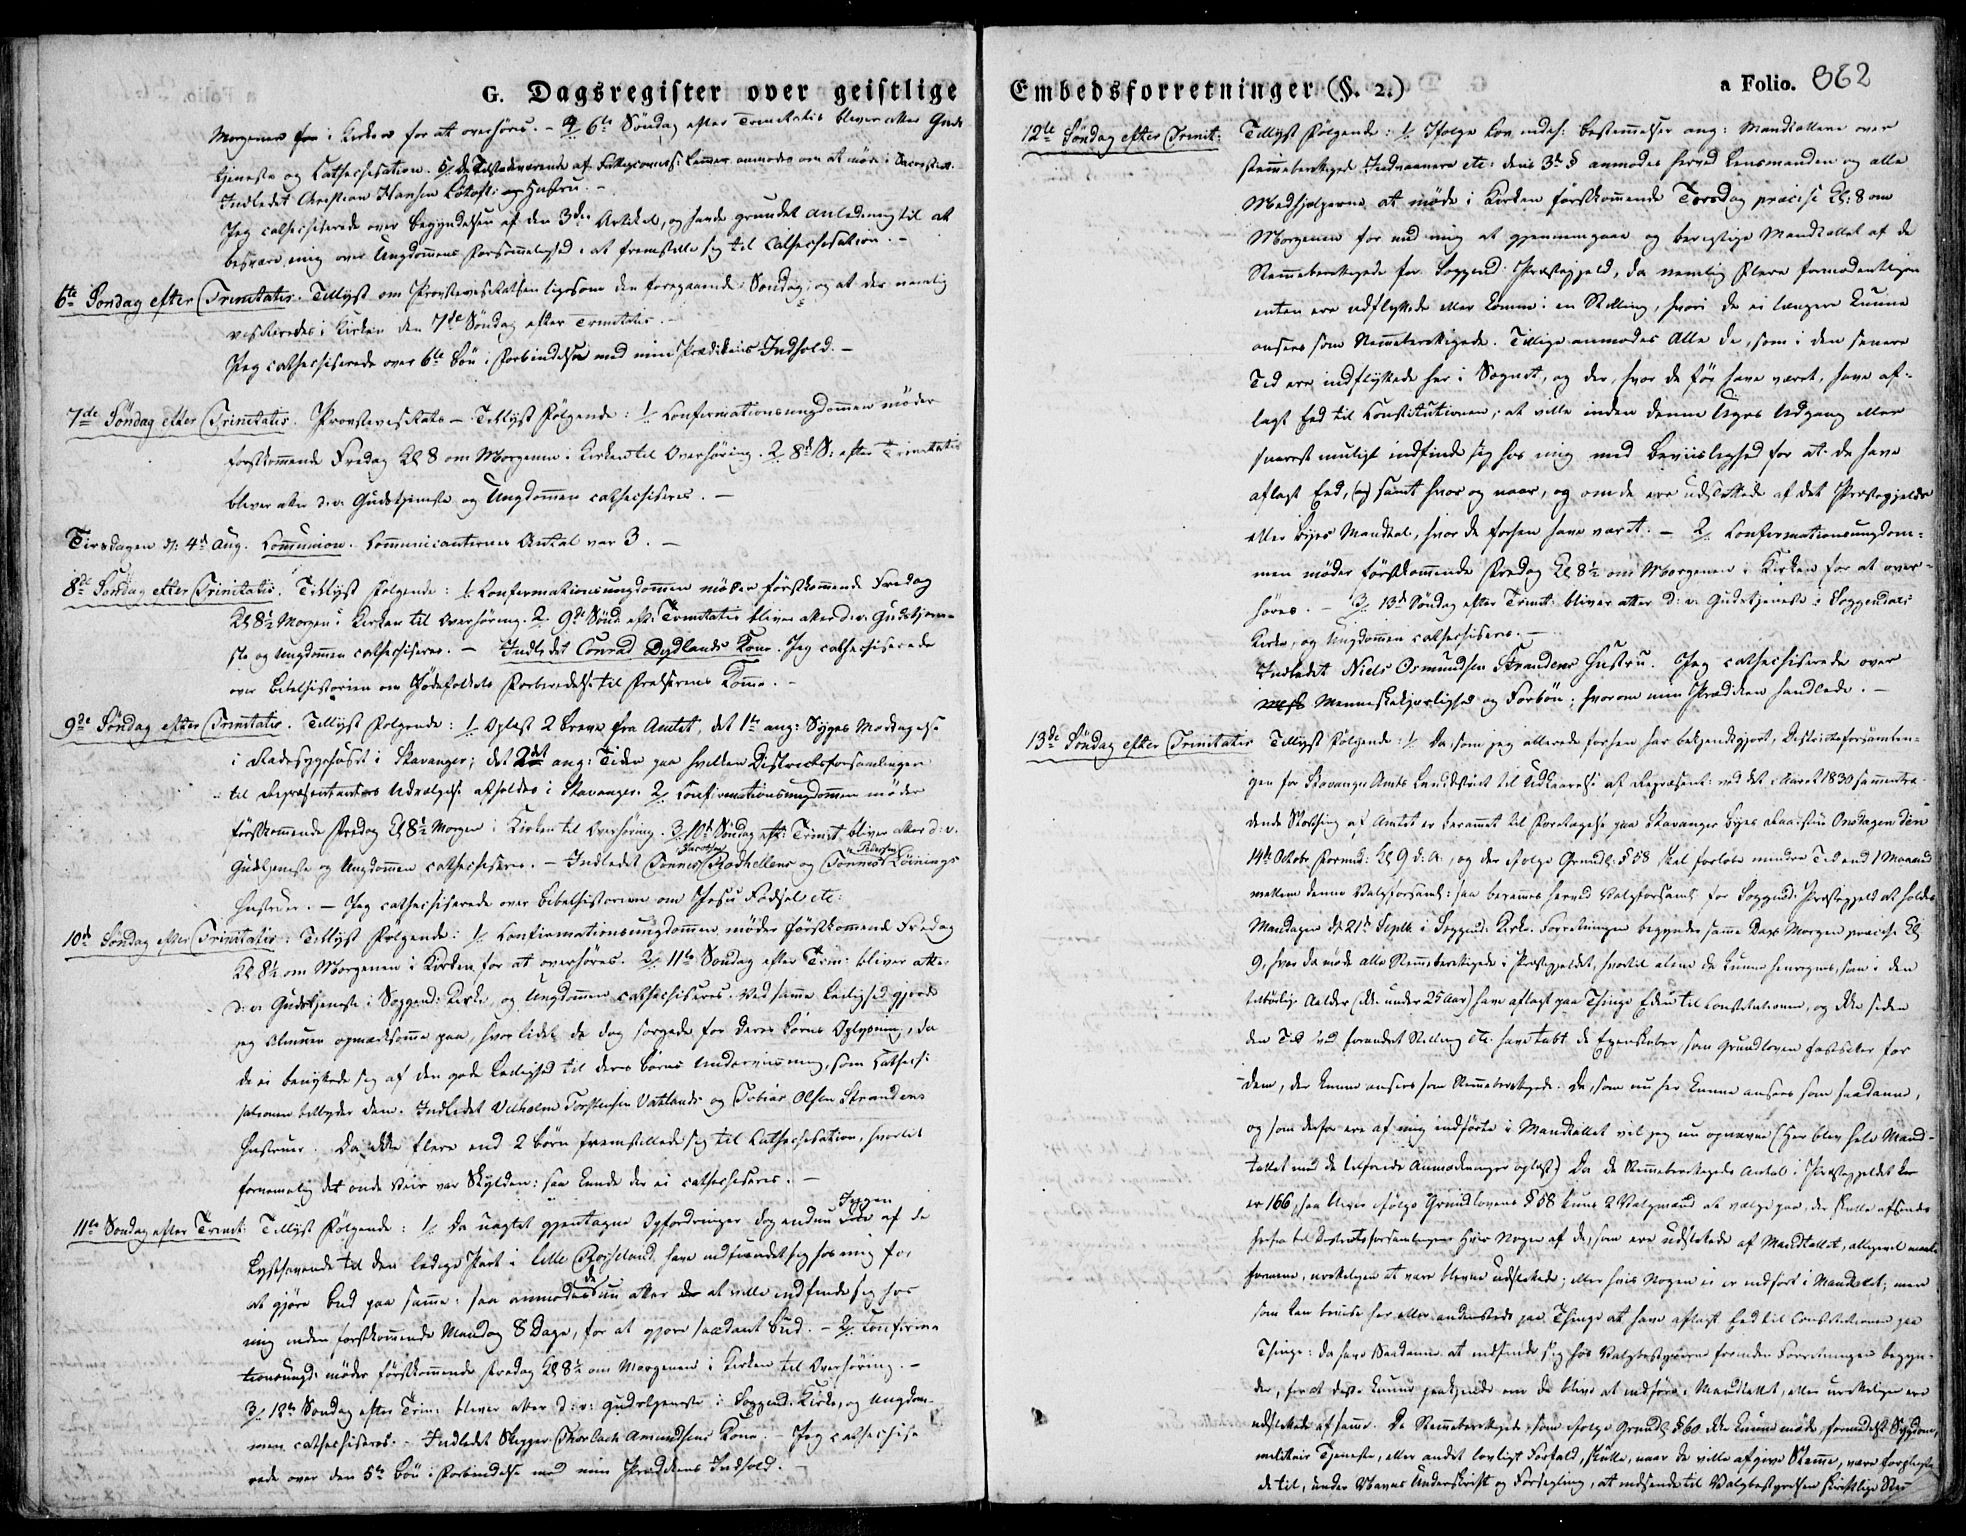 G. Dagsregister over geistlige
Morgenen i Kirken for at overhøres. – 4/ 6te Søndag efter Trinitatis bliver atter Guds
tjeneste og Cathechisation. 5/ De tilstedeværende af Fattigcommiss: Lemmer anmodes om at møde i Sacristiet.
Indledet Christian Hansen Hustru. –
Jeg cathechiserede over Begyndelsen af den 3die Artikel, og havde grundet Anledning til at
besvære mig over Ungdommens Forsømmelighed i at fremstille sig til Cathechisation. –
6te Søndag efter Trinitatis. Tillyst om Provstevisitatsen ligesom den foregaaende Søndag, og at der nemlig
visiteredes i Kirken den 7de Søndag efter Trinitatis. –
Jeg cathechiserede over 6te Bøn i Forbindelse med min Prædikens Indhold. –
7de Søndag efter Trinitatis. Provstevisitats – Tillyst Følgende: 1/ Confirmationsungdommen møder
førstkommende Fredag Kl 8 om Morgenen i Kirken til Overhøring. 2/ 8de S: efter Trinitatis
bliver atter d: v: Gudstjeneste og Ungdommen cathechiseres. –
Tirsdagen d: 4de Aug. Communion. Communicanternes Antal var 3. –
8de Søndag efter Trinitatis. Tillyst Følgende: 1/ Confirmationsungdommen møder førstkommende Fredag
Kl 8½ Morgen i Kirken til Overhøring. 2/ 9de Sønd: eft: Trinitatis bliver atter d: v: Gudstjene-
ste og Ungdommen cathechiseres. – Indledet Conrad Dydlands Kone. Jeg cathechiserede
over Bibelhistorien om Jødefolkets Forberedelse til Frelserens Komme. –
9de Søndag efter Trinitatis. Tillyst Følgende: 1/ Oplæst 2 Breve fra Amtet, det 1te ang: Syges Modtagelse
i Radesygehuset i Stavanger; det 2det ang: Tiden paa hvilken Districtsforsamlingen
til Repræsentanters Udvælgelse afholdes i Stavanger. 2/ Confirmationsungdommen møder
førstkommende Fredag Kl 8½ Morgen i Kirken til Overhøring. 3/ 10de Søndag eft: Trinit: bliver atter d: v:
Gudstjeneste og Ungdommen cathechiseres. – Indledet Tønnes Rodhellens og Tønnes Pedersen Løinings
Hustruer. – Jeg cathechiserede over Bibelhistorien om Jesu Fødsel etc:
10de Søndag efter Trinitatis: Tillyst Følgende: 1/ Confirmationsungdommen møder førstkommende Fredag
Kl 8½ om Morgenen i Kirken for at overhøres. 2/ 11te Søndag efter Trin: bliver atter
d: v: Gudstjeneste i Soggend: Kirke, og Ungdommen cathechiseres. Ved samme Leilighed gjorde
jeg Almuen opmærksomme paa, hvor lidet de dog sørgede for deres Børns Oplysning, da
de ei benyttede sig af den gode Leilighed til deres Børns Underviisning, som Cathechi-
sationen tilbyder dem. Indledet Vilhelm Torstensen Vatlands og Tobias Olsen Strandens
Hustruer. Da ikke flere end 2 Børn fremstillede sig til Cathechisation, hvortil
fornemmelig det onde Veir var Skylden: saa kunde der ei cathechiseres. –
11te Søndag efter Trinit: Tillyst Følgende: 1/ Da uagtet gjentagne Opfordringer dog endnu Ingen af de
Lysthavende til den ledige Part i lille Rosseland have indfundet sig hos mig for
at gjøre Bud paa samme: saa anmodes de nu atter at ville indfinde sig hos
mig inden førstkommende Mandag 8 Dage, for at gjøre saadant Bud. – 2/ Confirma
tionsungd: møder førstkommende Fredag Kl 8½ om Morgenen i Kirken til Overhøring. –
3/ 12te Søndag efter Trin: bliver atter d: v: Gudstjeneste i Soggend: Kirke, og Ungdom-
men cathechiseres. – Indledet Skipper Thorlach Amundsens Kone. – Jeg cathechise
rede over den 5te Bøn i Forbindelse med min Prædikens Indhold. –
Embedsforretninger (§. 2.)
a Folio. 862
12te Søndag efter Trinit: Tillyst Følgende: 1/ Ifølge Lov indeh: Bestemmelser ang: Mandtallene over
stemmeberettigede Indvaanere etc: dens 3de § anmodes herved Lensmanden og alle
Medhjelperne at møde i Kirken førstkommende Torsdag præcise Kl: 8 om
Morgenen for med mig at gjennemgaae og berigtige Mandtallet af de
Stemmeberettigede for Soggend: Præstegjeld, da nemlig Flere formodentligen
enten ere udflyttede eller komne i en Stilling, hvori de ei længere kunne
ansees som Stemmeberettigede. Tillige anmodes Alle de, som i den senere
Tid ere indflyttede her i Sognet, og der, hvor de før have været, have af-
lagt Eed til Constitutionen, at ville inden denne Uges Udgang eller
snarest muligt indfinde sig hos mig med Beviislighed for at de have
aflagt Eed, samt hvor og naar, og om de ere udslettede af det Præstegjelds
eller Byes Mandtal, hvor de forhen have været. – 2/ Confirmationsungdom-
men møder førstkommende Fredag Kl 8½ om Morgenen i Kirken for at over-
høres. – 3/ 13de Søndag efter Trinit: bliver atter d: v: Gudstjeneste i Soggendals
Kirke, og Ungdommen cathechiseres. –
Indledet Niels Osmundsen Strandens Hustru. Jeg cathechiserede over
Menneskekjærlighed og Forbøn, hvorom min Prædiken handlede. –
13de Søndag efter Trinitatis Tillyst Følgende: 1/ Da, som jeg allerede forhen har bekjendtgjort, Districtsforsamlin-
gen for Stavanger Amts Landdistrict til Udkaarelse af Repræsent: ved det i Aaret 1830 sammentræ-
dende Storthing af Amtet er berammet til Foretagelse paa Stavanger Byes Raadstue Onsdagen den
14de Octobr. Formid: Kl 9 d: A:, og der ifølge Grundl: § 58 skal forløbe mindre Tid end 1 Maaned
mellem denne Valgforsaml: saa berammes herved Valgforsaml: for Soggend: Præstegjeld at holdes
Mandagen d: 21de Septb. i Soggend: Kirke. Forretningen begynder samme Dags Morgen præcise Kl
9, hvor da møde alle Stemmeberettigede i Præstegjeldet, hvortil alene de kunne henregnes, som i den
tilbørlige Alder (ikke under 25 Aar) have aflagt paa Thinge Eden til Constitutionen, og ikke siden
den Tid ved forandret Stilling etc: have tabt de Egenskaber, som Grundloven fastsætter for
dem, der kunne ansees som Stemmeberettigede. De, som nu her kunne ansees som saadanne,
og som derfor ere af mig indførte i Mandtallet vil jeg nu opnævne (Her blev hele Mand-
tallet med de Anmodninger oplæst) Da de Stemmeberettigedes Antal i Præstegjeldet kun
er 166, saa bliver ifølge Grundlovens § 58 kuns 2 Valgmænd at vælge paa, der skulle afsendes
herfra til Districtsforsamlingen. Hvis Nogen af de, som ere udslettede af Mandtallet, alligevel maatte
formene, urettelig at være blevne udslettede; eller hvis Nogen ei er indført i Mandtallet, men
som kan bevise her eller andensteds paa Thinge at have aflagt Eed til Constitutionen paa
Thinge: da have Saadanne at indfinde sig hos Valgbestyrerne førinden Forretningen begyn-
der, for at disse kunne paakjende om de blive at indføre i Mandtallet, eller urettelige ere
udslettede af samme. De Stemmeberettigede, som ifølge Grundl: § 60 ikke kunne møde, formedelst Sygdom,
militair Tjeneste, eller andet lovligt Forfald, skulle, naar de ville afgive Stemme, være forpligte-
de til, under Navns Underskrift og Forsegling, at indsende til Valgbestyrelsen skriftlige Stem